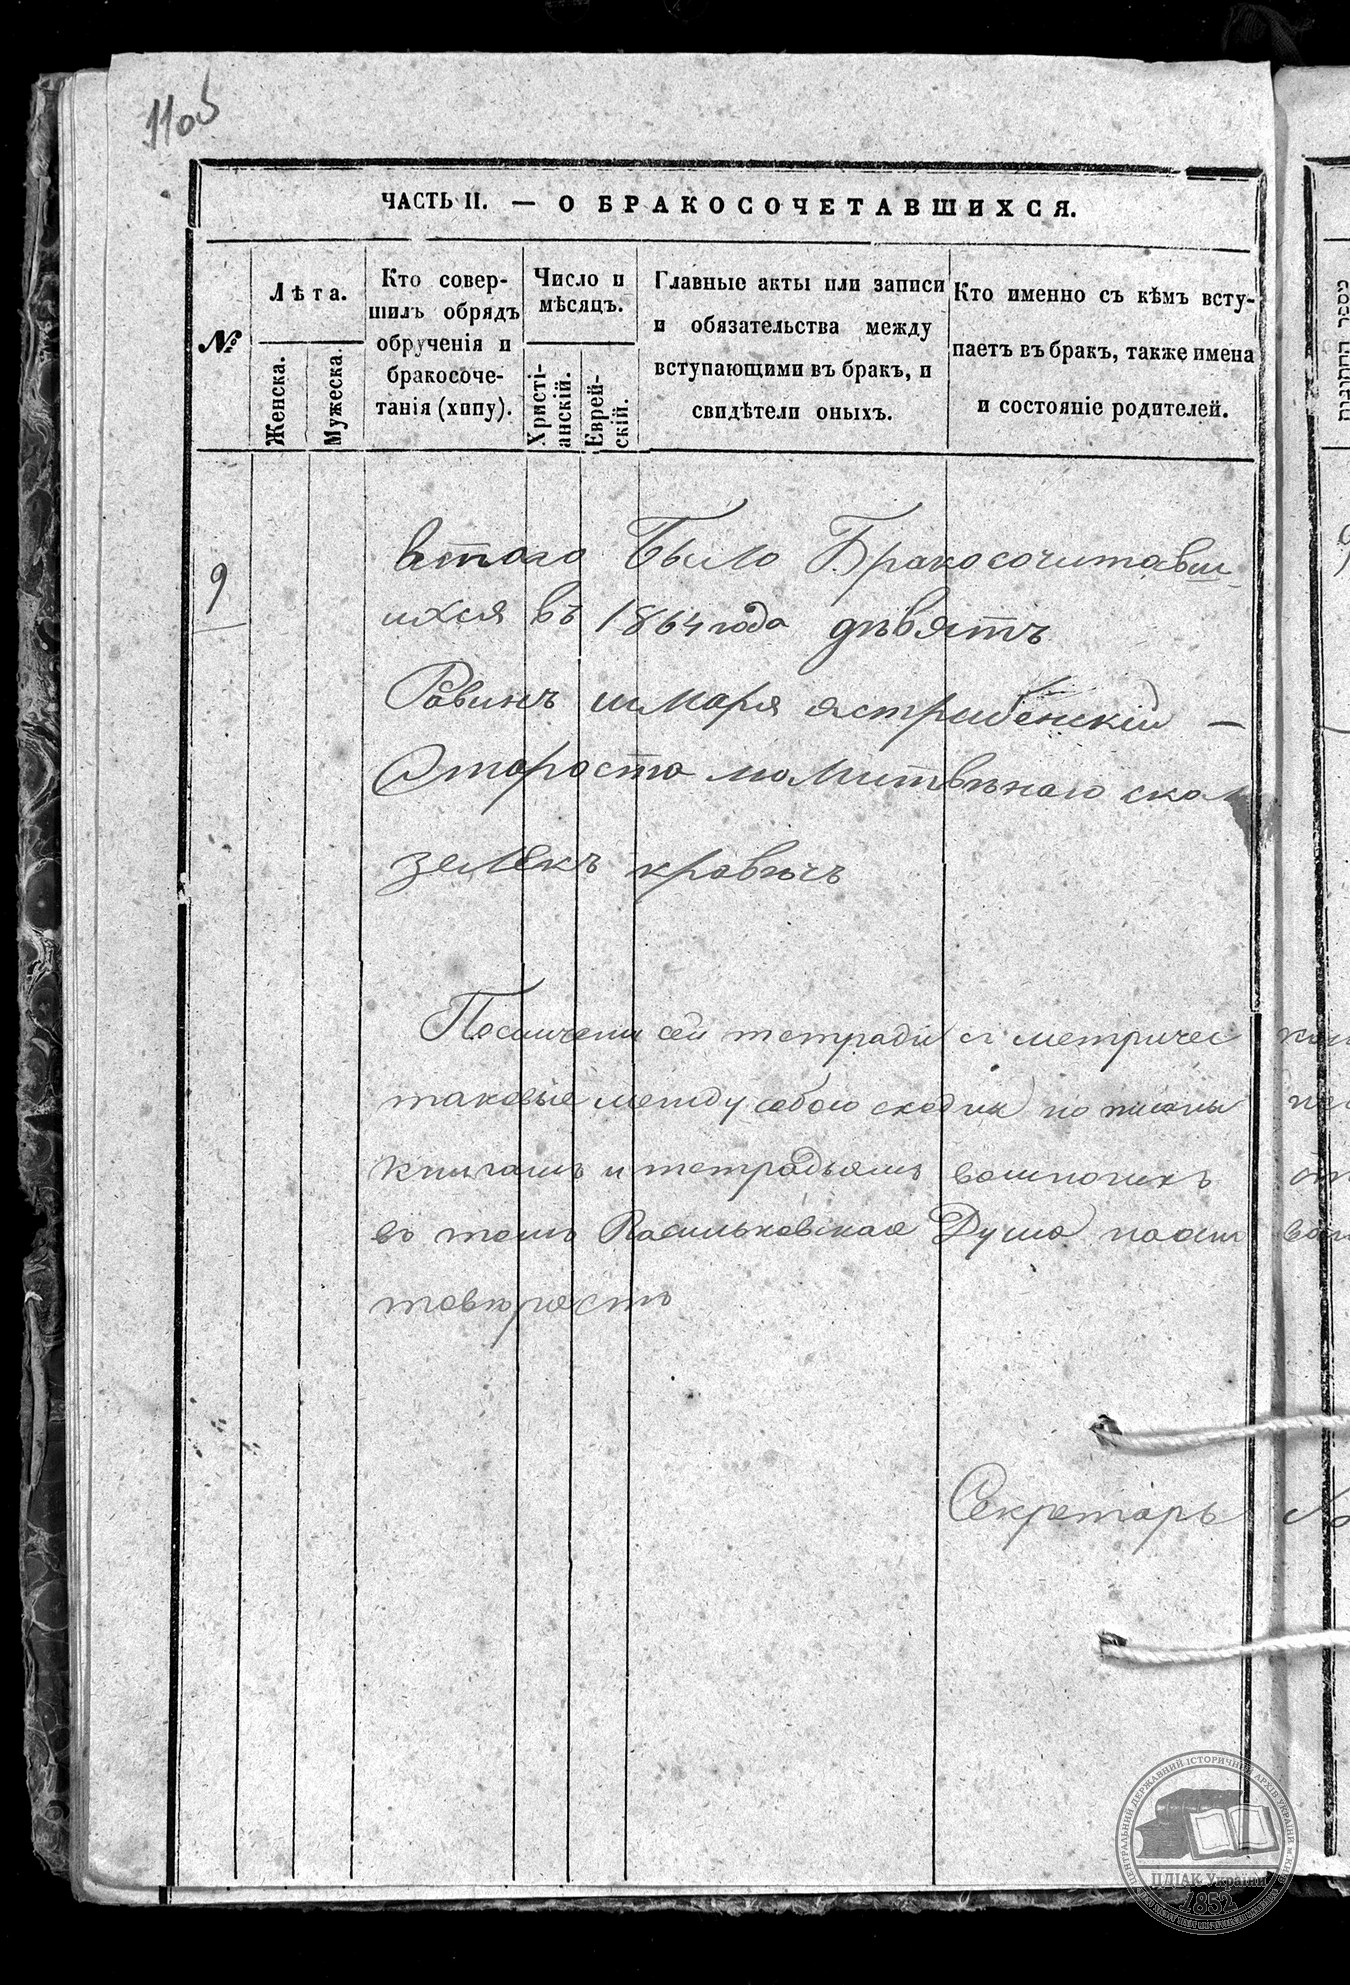 110б
ЧАСТЬ II. — О БРАКОСОЧЕТАВШИХСЯ.
№
Лѣта.
Женска.
Мужеска.
Кто совер-
шилъ обрядъ
обрученія и
бракосоче-
танія (хипу).
Число и
мѣсяцъ.
Христі-
анскій.
Еврей-
скій.
Главные акты или записи
и обязательства между
вступающими въ бракъ, и
свидѣтели оныхъ.
Кто именно съ кѣмъ всту-
паетъ въ бракъ, также имена
и состояніе родителей.
9
втого Было Бракосочитавш-
ихся въ 1864 года дѣвятъ
Равинъ шмаря ястребенскій —
Староста молитвѣнаго скол
зелекъ кравѣчъ
По сличени сей тетради съ метричес
таковые между собою сходны по
книгамъ и тетрадьямъ
въ томъ Васильковская Дума
Секретарь
ЦЕНТРАЛЬНИЙ ДЕРЖАВНИЙ ІСТОРИЧНИЙ АРХІВ УКРАЇНИ М. КИЇВ
ЦДІАК України
1852